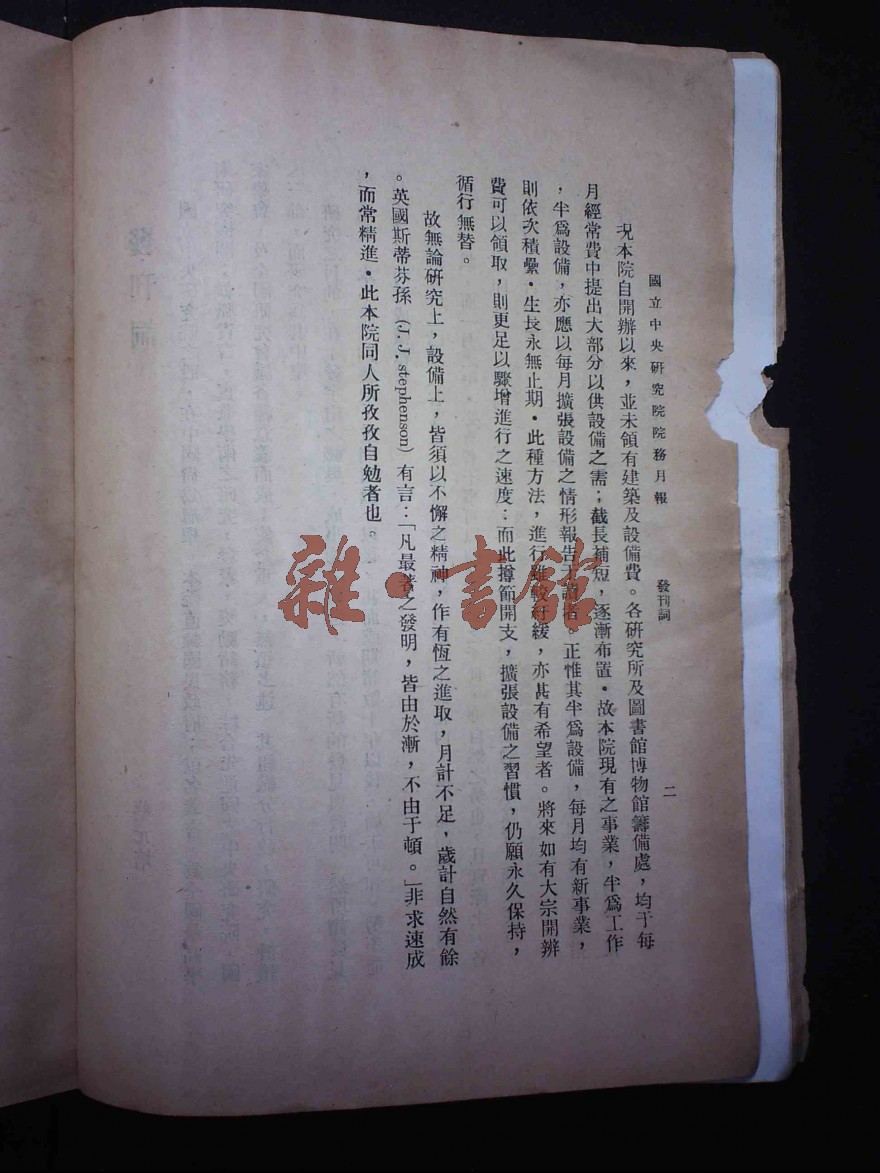 國立中央研究院院務月報 發刊詞 二
況本院自開辦以來，並未領有建築及設備費。各研究所及圖書館博物館籌備處，均于每
月經常費中提出大部分以供設備之需；截長補短，逐漸布置。故本院現有之事業，半爲工作
，半爲設備，亦應以每月擴張設備之情形報告于。正惟其半爲設備，每月均有新事業，
則依次積纍。生長永無止期。此種方法，進行雖較紆緩，亦甚有希望者。將來如有大宗開辦
費可以領取，則更足以驟增進行之速度：而此撙節開支，擴張設備之習慣，仍願永久保持，
循行無替。
故無論研究上，設備上，皆須以不懈之精神，作有恆之進取，月計不足，歲計自然有餘
。英國斯蒂芬孫（J. J. stephenson）有言：「凡最著之發明，皆由於漸，不由于頓。」非求速成
，而常精進。此本院同人所孜孜自勉者也。
雜·書館